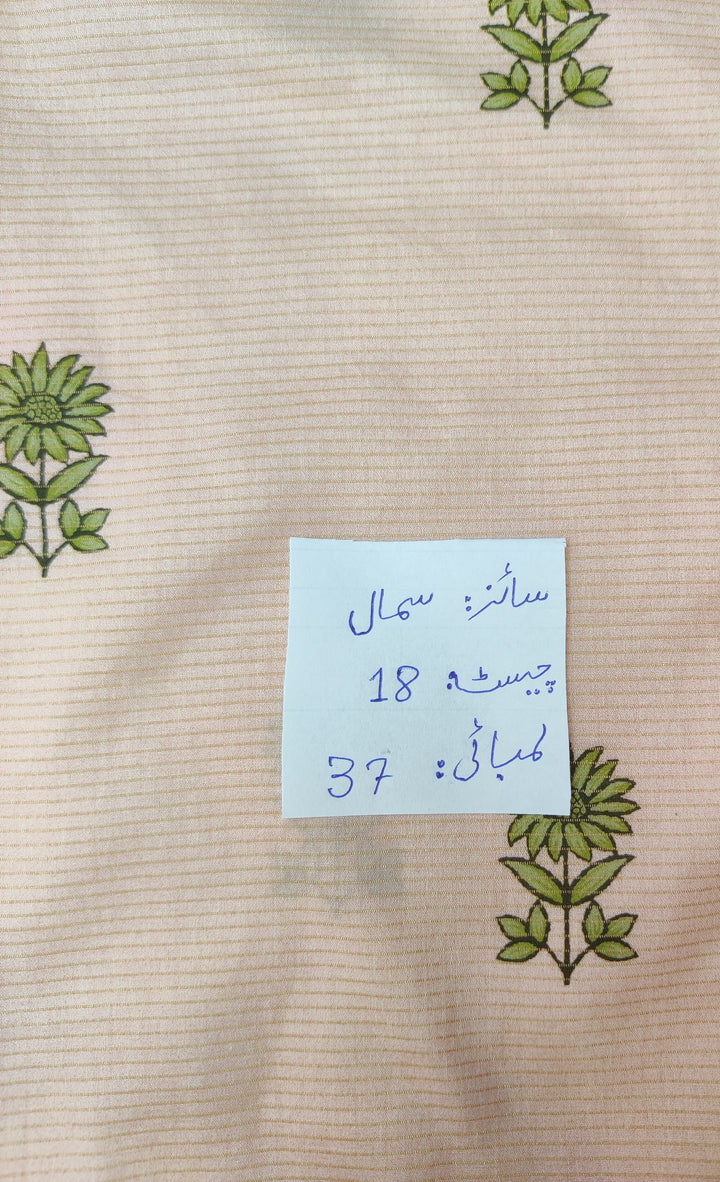 سائز: سمال
چیسٹ: 18
لمبائی: 37